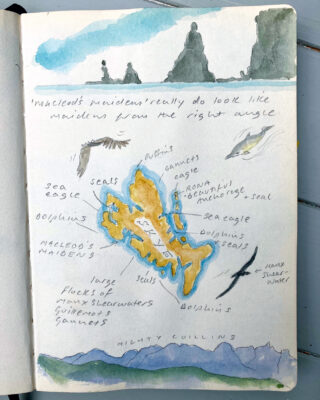 'Macleod's maidens' really do look like
maidens from the right angle
Puffins
gannets
eagle
RONA
BEAUTIFUL
Anchorage + seal
Sea
eagle
Seals
Sea eagle
Dolphins
Dolphins
seals
MACLEOD'S
MAIDENS
SKYE
Manx
Shear-
water
large
flocks of
Manx shearwaters
Guillemots
Gannets
seals
Dolphins
MIGHTY CUILLINS